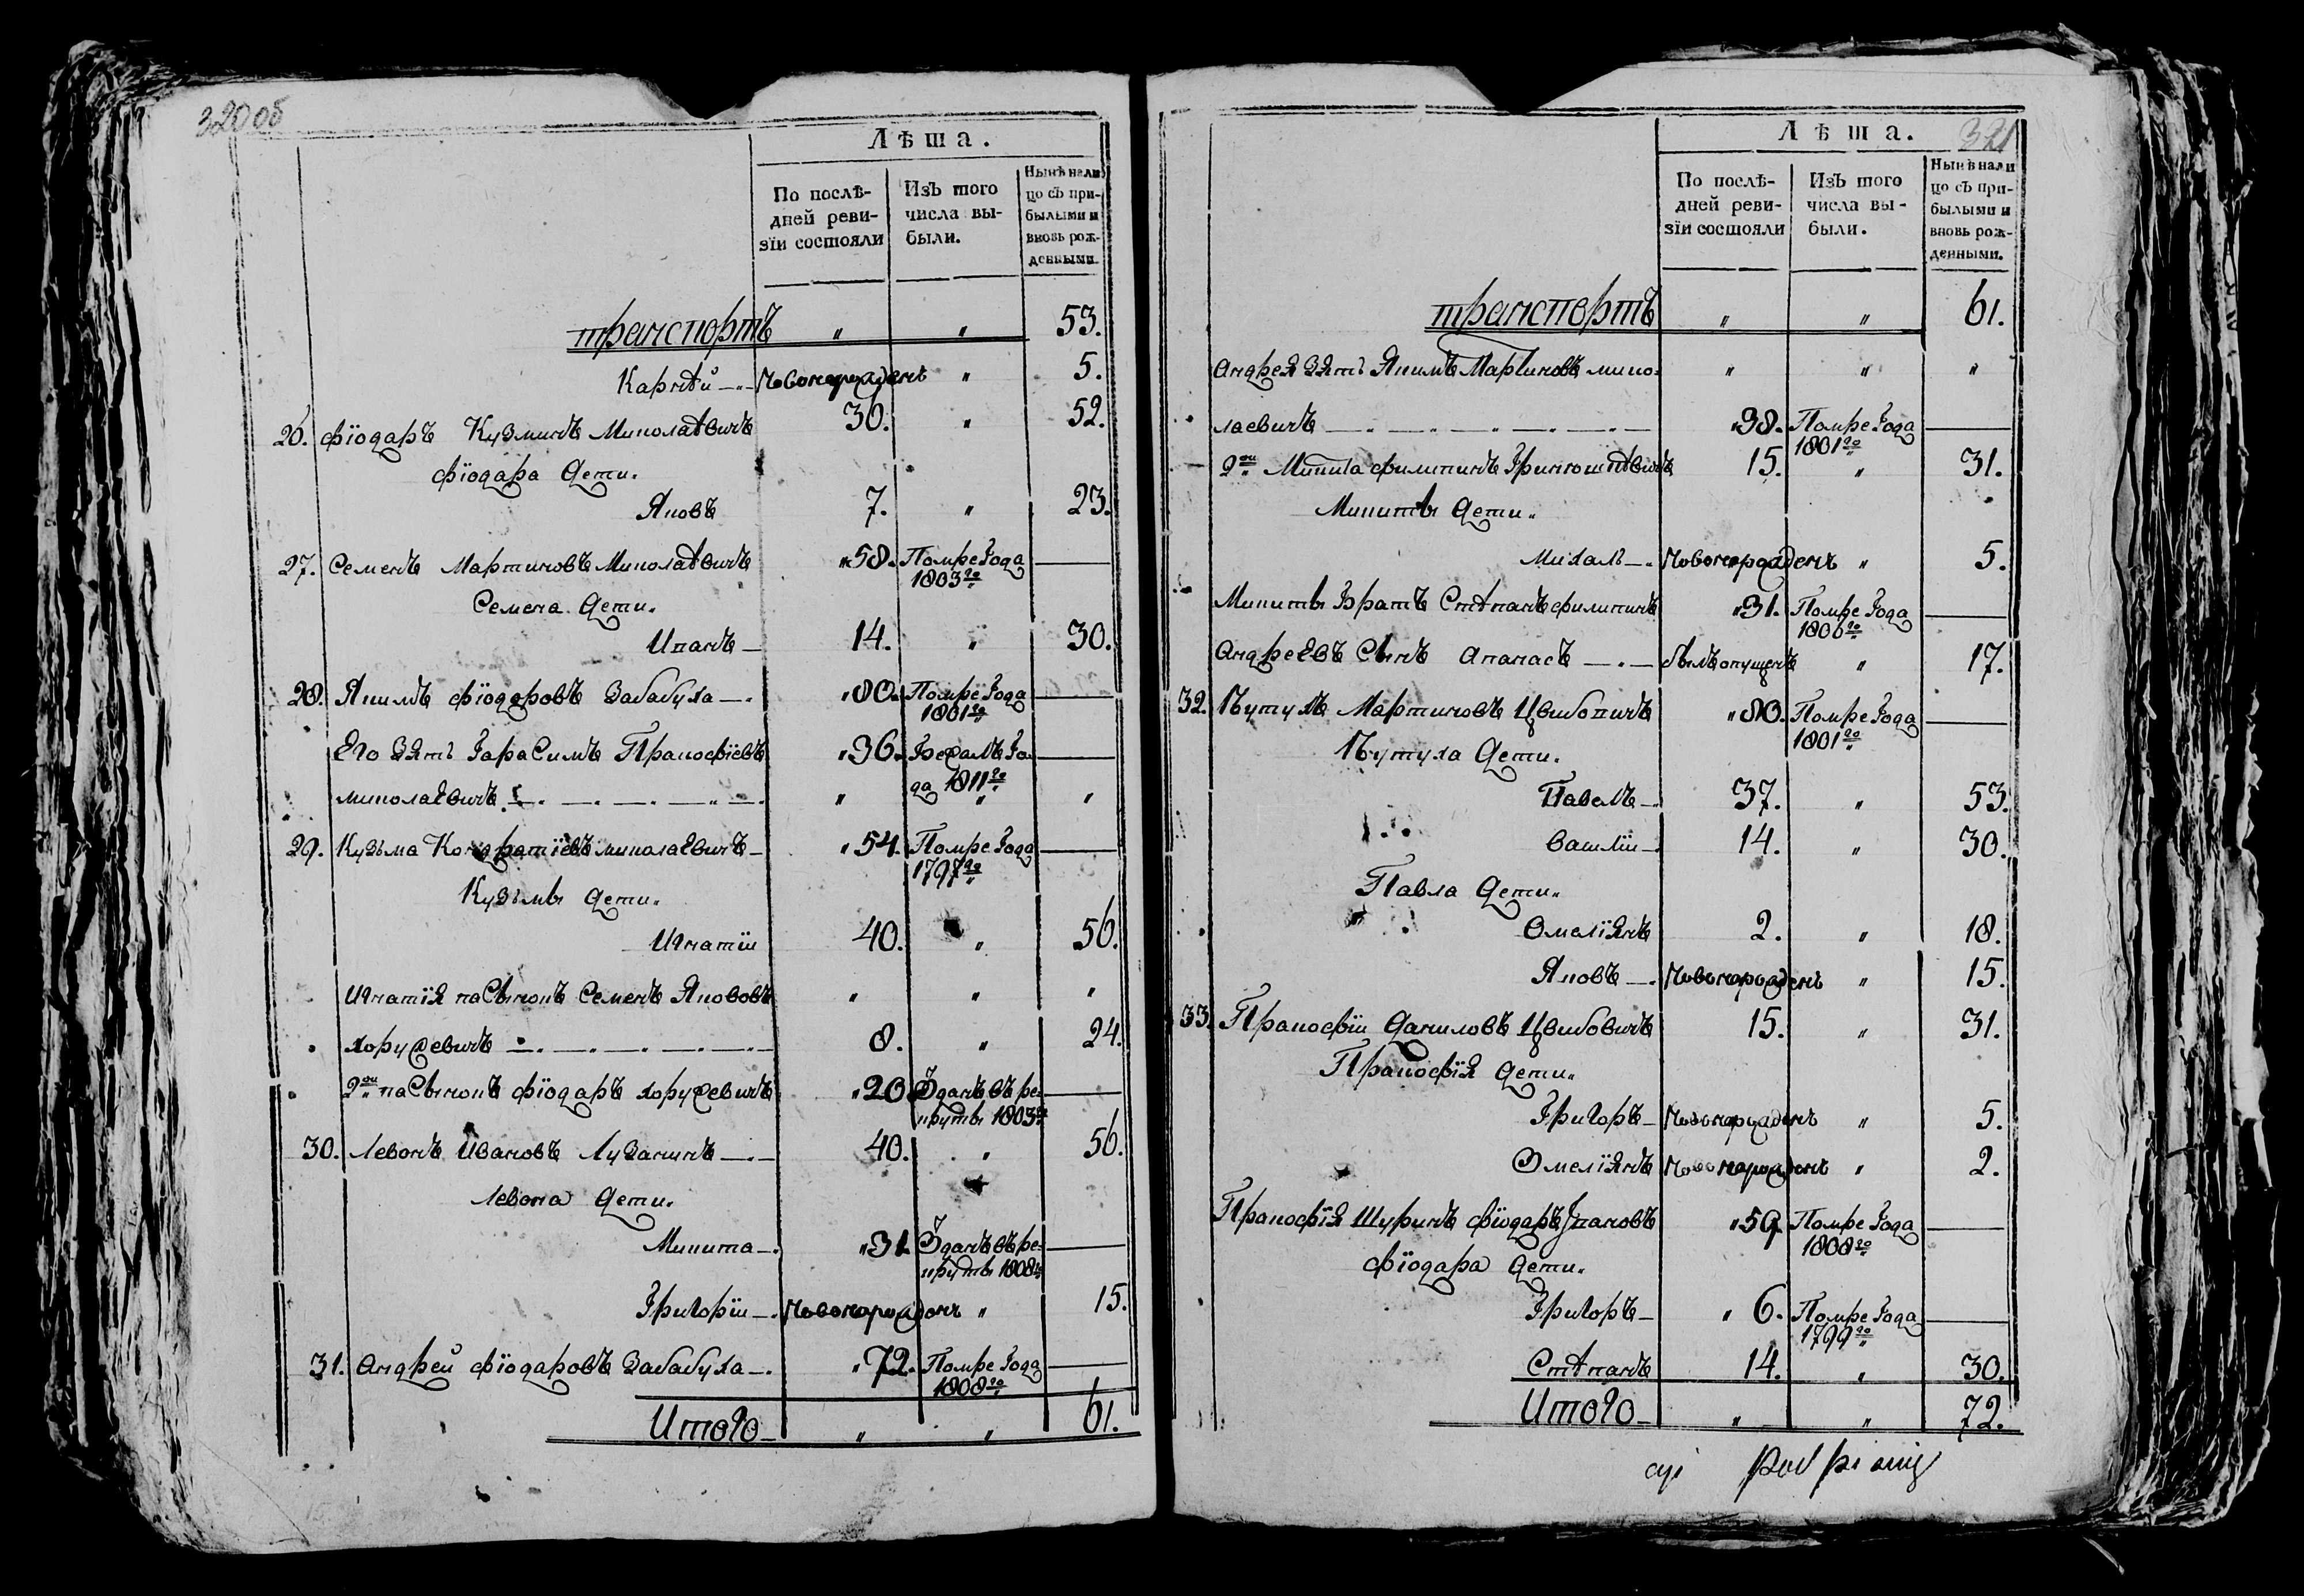 320 об
Лѣта.
По послѣ-
дней реви-
зїи состояли
Изъ того
числа вы-
были.
Нынѣ нали
цо съ при-
былыми и
вновь рож-
денными.
транспортъ " " 53.
Карнѣй — Новонарожденъ " 5.
26. Фїодаръ Кузминъ Миколаѣвичъ 30. " 52.
Фїодара Дети.
Яковъ 7. " 23.
27. Семенъ Мартиновъ Миколаѣвичъ "58. Помре Года
1803го
Семена Дети.
14. " 30.
28. Якимъ Фїодоровъ Забабуха — "80. Помре Года
1801го
Его Зять Гарасимъ Пракофїевъ "36. Бежалъ Го-
да 1811го
миколаевичъ " " "
29. Кузьма Кондратїевъ миколаевичъ — "54. Помре Года
1797го
Кузьмы Дети.
Игнатїи 40. " 56.
Игнатїя пасынокъ Семенъ Якововъ " " "
хоружевичъ 8. " 24.
2ои пасынокъ Фїодаръ хоружевичъ "20. Зданъ въ ре-
круты 1803го
30. Левонъ Ивановъ Лузанинъ — 40. " 56.
Левона Дети.
Микита — "31. Зданъ въ ре-
круты 1808го
Григорїи — Новонарожденъ " 15.
31. Андрей Фїодаровъ Забабуха — "72. Помре Года
1808го
Итого — " " 61.
321
Лѣта.
По послѣ-
дней реви-
зїи состояли
Изъ того
числа вы-
были.
Нынѣ нали
цо съ при-
былыми и
вновь рож-
денными.
транспортъ " " 61.
Андрея Зять Якимъ Мартиновъ мико- " " "
лаевичъ "38. Помре Года
1801го
2ои Микита филипинъ 15. " 31.
Микиты Дети.
Михалъ — Новонарожденъ " 5.
Микиты Братъ Стѣпанъ филипинъ "31. Помре Года
1806го
Андреевъ Сынъ Апанасъ — былъ опущенъ " 17.
32. Мартиновъ "80. Помре Года
1801го
Дети.
Павелъ — 37. " 53.
Васили — 14. " 30.
Павла Дети.
Омелїянъ 2. " 18.
Яковъ — Новонарожденъ " 15.
33. Пракофїи Даниловъ Цвибовичъ 15. " 31.
Пракофїя Дети.
Григоръ — Новонарожденъ " 5.
Омелїянъ Новонарожденъ " 2.
Пракофїя Шуринъ Фїодаръ "59. Помре Года
1808го
Фїодара Дети.
Григоръ — " 6. Помре Года
1799го
Стѣпанъ 14. " 30.
Итого — " " 72.